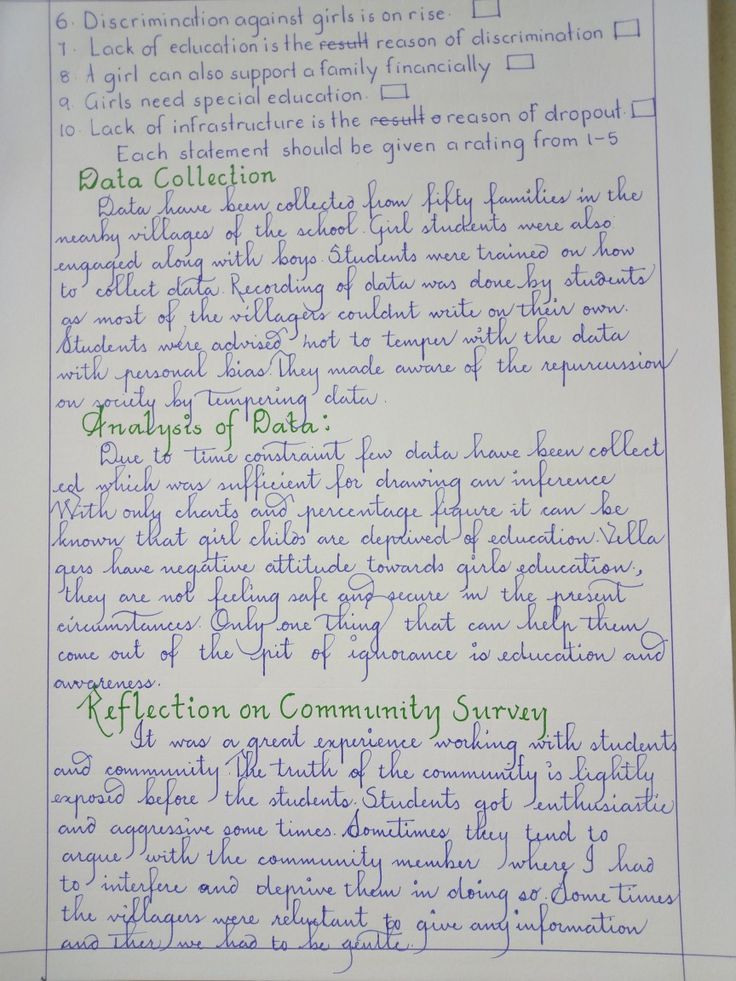 6. Discrimination against girls is on rise.
7. Lack of education is the result reason of discrimination
8. A girl can also support a family financially
9. Girls need special education.
10. Lack of infrastructure is the result o reason of dropout.
Each statement should be given a rating from 1-5
Data Collection
Data have been collected from fifty families in the
nearby villages of the school. Girl students were also
engaged along with boys. Students were trained on how
to collect data. Recording of data was done by students
as most of the villagers couldnt write on their own.
Students were advised not to temper with the data
with personal bias. They made aware of the repurcussion
on society by tempering data.
Analysis of Data:
Due to time constraint few data have been collect
ed which was sufficient for drawing an inference
With only charts and percentage figure it can be
known that girl childs are deprived of education. Villa
gers have negative attitude towards girls education,
they are not feeling safe and secure in the present
circumstances. Only one thing that can help them
come out of the pit of ignorance is education and
awareness.
Reflection on Community Survey
It was a great experience working with students
and community. The truth of the community is lightly
exposed before the students. Students got enthusiastic
and aggressive some times. Sometimes they tend to
argue with the community member where I had
to interfere and deprive them in doing so. Some times
the villagers were reluctant to give any information
and then we had to be gentle.